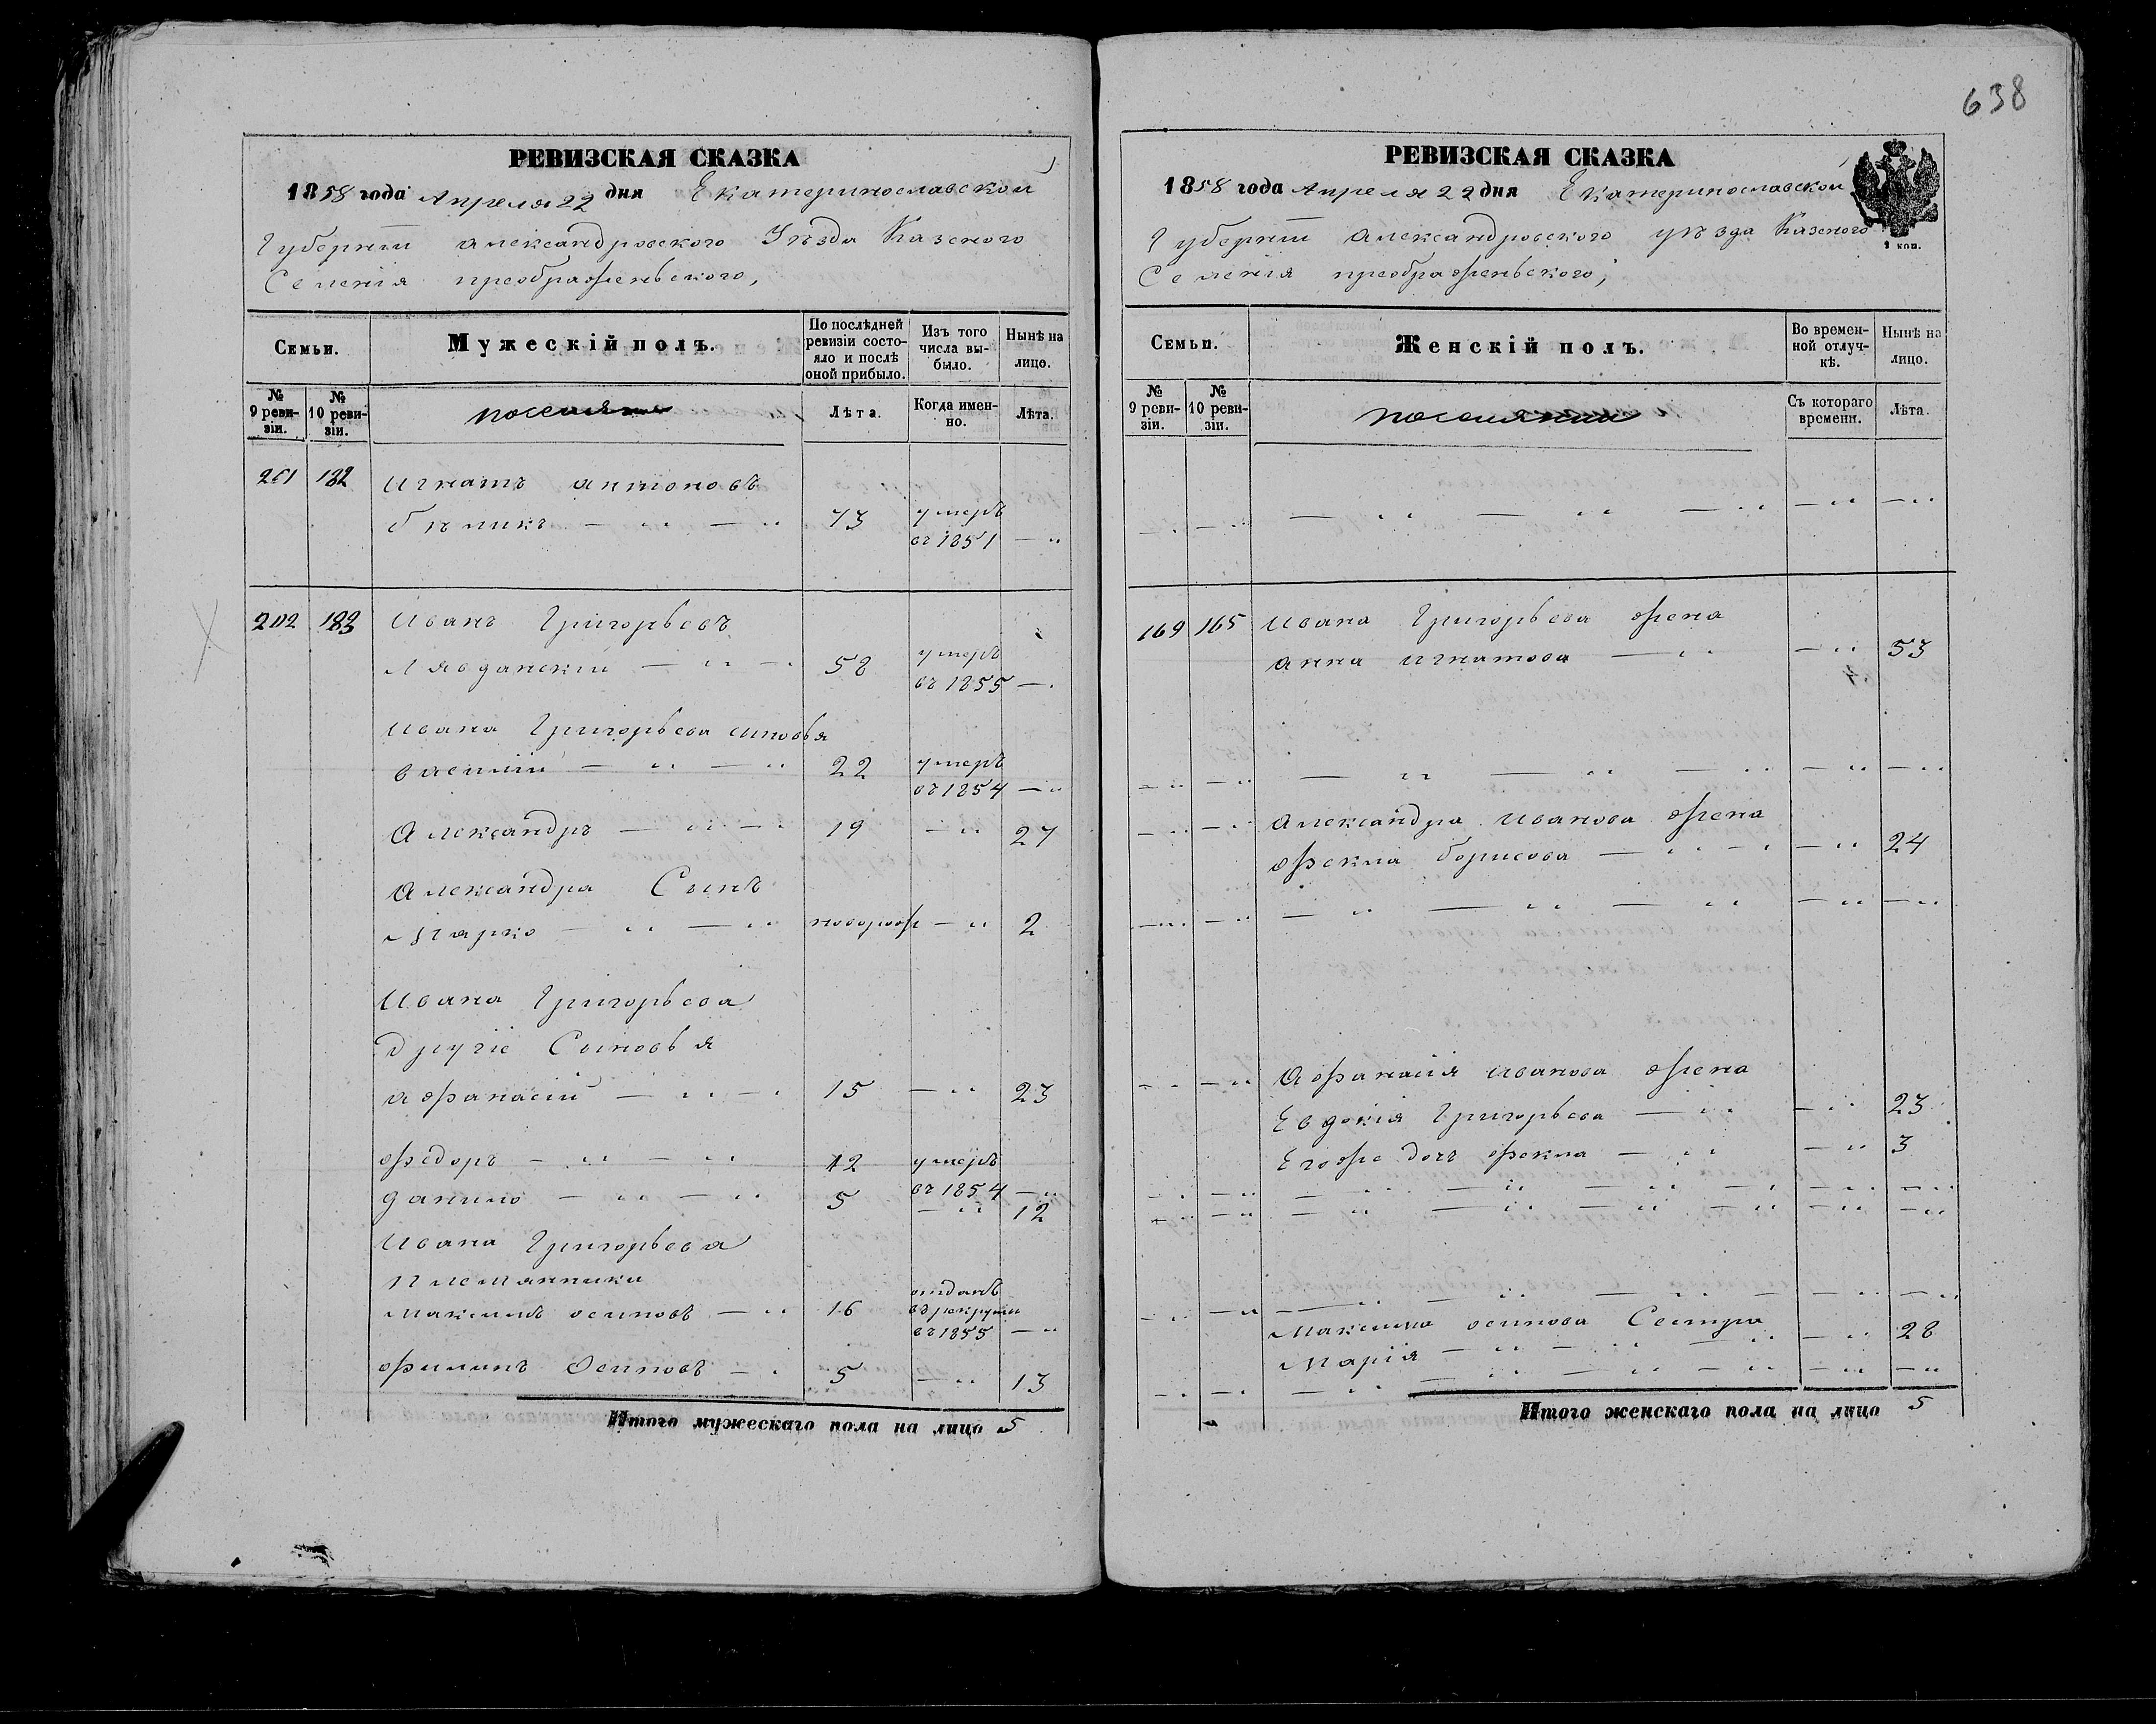 638
РЕВИЗСКАЯ СКАЗКА
1858 года Апреля 22 дня Екатеринославской
Губерніи Александровского Уезда Казеного
Селенія преображеньского,
Семьи.
Мужескій полъ.
По послѣдней ревизіи состояло и послѣ оной прибыло.
Изъ того числа выбыло.
Нынѣ на лицо.
№ 9 ревизіи.
№ 10 ревизіи.
поселяне
Лѣта.
Когда именно.
Лѣта.
201 182 Игнатъ антоновъ
бѣликъ — " — " 73 умеръ въ 1851 — "
202 183 Иванъ Григорьевъ
Лявданскій — " — " 58 умеръ въ 1855 — "
Ивана Григорьева синовья
василій — " — " 22 умеръ въ 1854 — "
Александръ — " — " 19 — " 27
Александра Сынъ
Марко — " — " новорож — " 2
Ивана Григорьева
другіе Сыновья
афанасій — " — " 15 — " 23
федоръ — " — " 12 умеръ въ 1854 — "
данило — " — " 5 — " 12
Ивана Григорьева
племянники
Максимъ осиповъ — " 16 отданъ въ рекруты въ 1855 — "
филипъ Осиповъ — " 5 — " 13
Итого мужескаго пола на лицо 5
РЕВИЗСКАЯ СКАЗКА
1858 года Апреля 22 дня Екатеринославской
Губерніи Александровского уѣзда Казеного
Селенія преображеньского,
2 коп.
Семьи.
Женскій полъ.
Во временной отлучкѣ.
Нынѣ на лицо.
№ 9 ревизіи.
№ 10 ревизіи.
поселянки
Съ котораго времени.
Лѣта.
— " — " — " — " — " — " — "
169 165 Ивана Григорьева жена
анна игнатова — " — " 53
— " — " — " — " — " — " — "
— " — " Александра Иванова жена
фекла борисова — " — " — " 24
— " — " — " — " — " — " — "
— " — " Афанасія иванова жена
Евдокія Григорьева — " — " 23
Егоже дочь фекла — " — " 3
— " — " — " — " — " — " — " — "
— " — " — " — " — " — " — " — "
— " — " — " — " — " — " — " — "
Максима осипова Сестра
Марія — " — " — " — " 28
— " — " — " — " — " — " — " — "
Итого женскаго пола на лицо 5